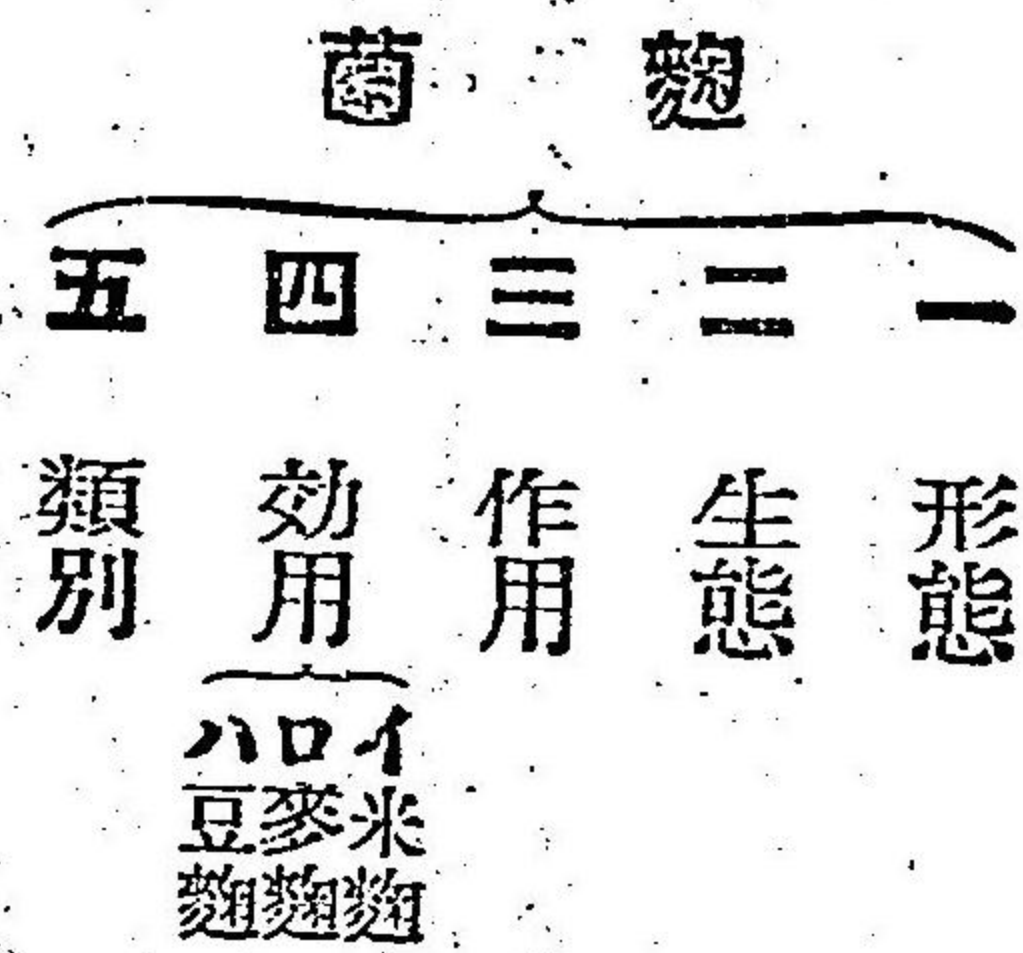 麴菌
一 形態
二 生態
三 作用
四 効用
イ 米麴
ロ 麥麴
ハ 豆麴
五 類別